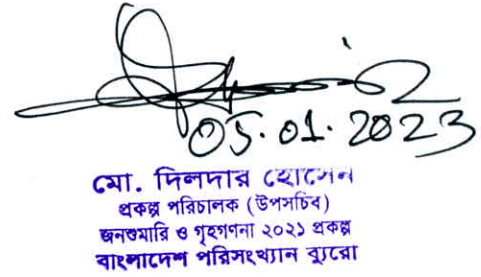 05.01.2023
মো. দিলদার হোসেন
প্রকল্প পরিচালক (উপসচিব)
জনশুমারি ও গৃহগণনা ২০২১ প্রকল্প
বাংলাদেশ পরিসংখ্যান ব্যুরো